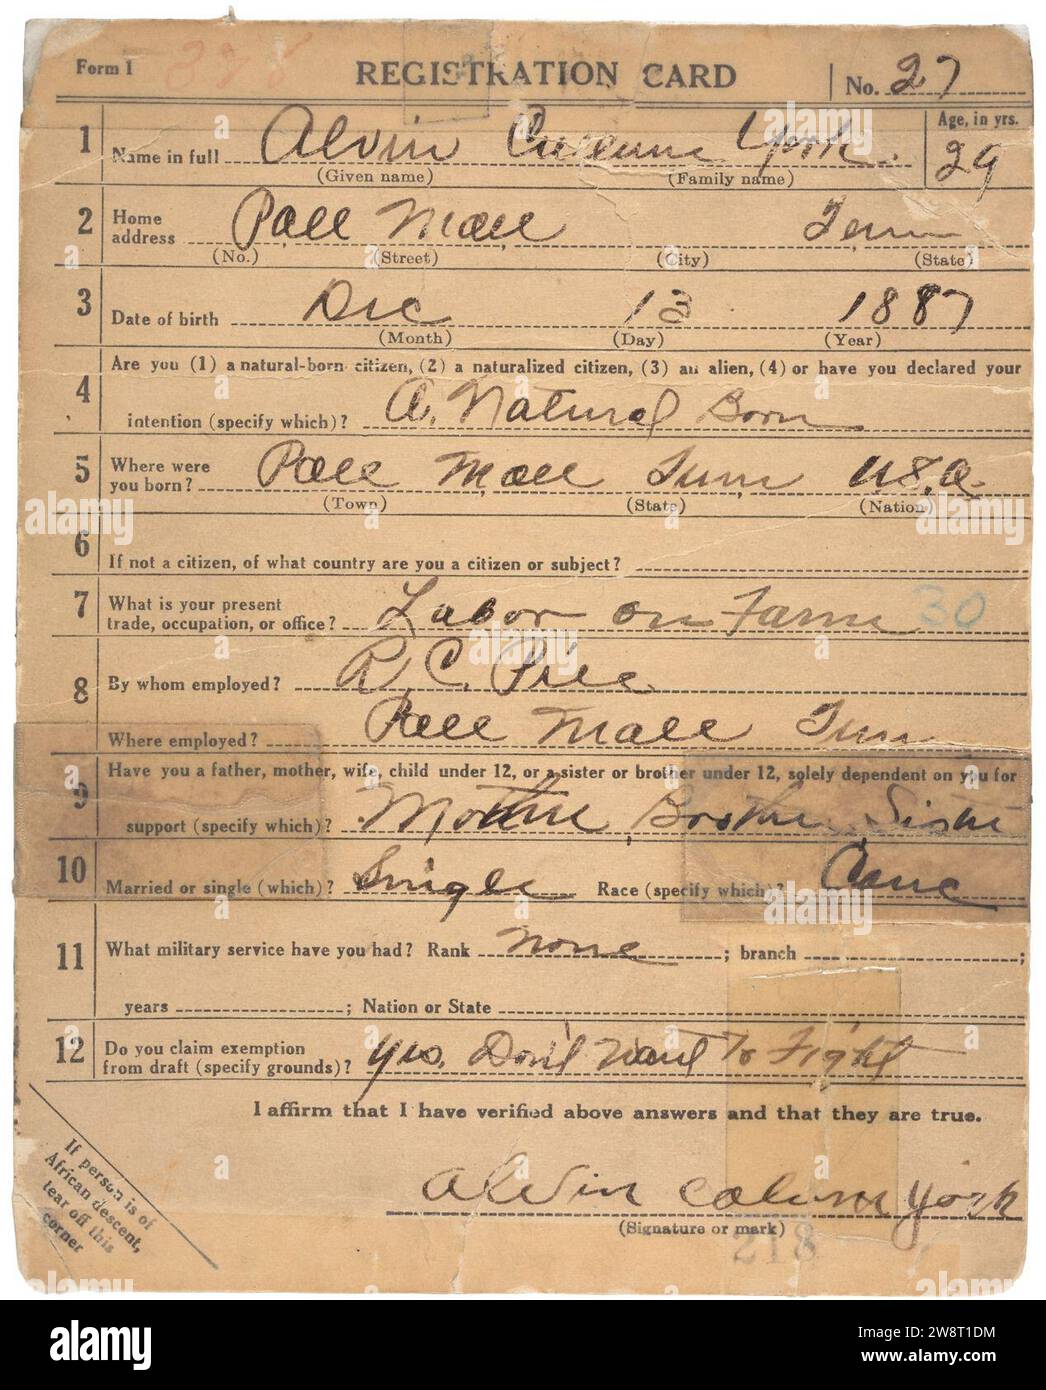 Form 1 328 REGISTRATION CARD No. 27
1 Name in full Alvin Cullum York. Age, in yrs. 29
(Given name) (Family name)
2 Home address Pall Mall Tenn
(No.) (Street) (City) (State)
3 Date of birth Dec 13 1887
(Month) (Day) (Year)
4 Are you (1) a natural-born citizen, (2) a naturalized citizen, (3) an alien, (4) or have you declared your
intention (specify which)? A. Natural Born
5 Where were you born? Pall Mall Tenn U.S.A.
(Town) (State) (Nation)
6 If not a citizen, of what country are you a citizen or subject?
7 What is your present trade, occupation, or office? Labor on Farm 30
8 By whom employed? R. C. Pile
Where employed? Pall Mall Tenn
9 Have you a father, mother, wife, child under 12, or a sister or brother under 12, solely dependent on you for
support (specify which)? Mother, Brother, Sister
10 Married or single (which)? Single Race (specify which)? Cauc
11 What military service have you had? Rank none ; branch ;
years ; Nation or State
12 Do you claim exemption from draft (specify grounds)? Yes. Don't Want To Fight
I affirm that I have verified above answers and that they are true.
Alvin Cullum York
(Signature or mark)
218
If person is of
African descent,
tear off this
corner
alamy
Image ID: 2W8T1DM
www.alamy.com